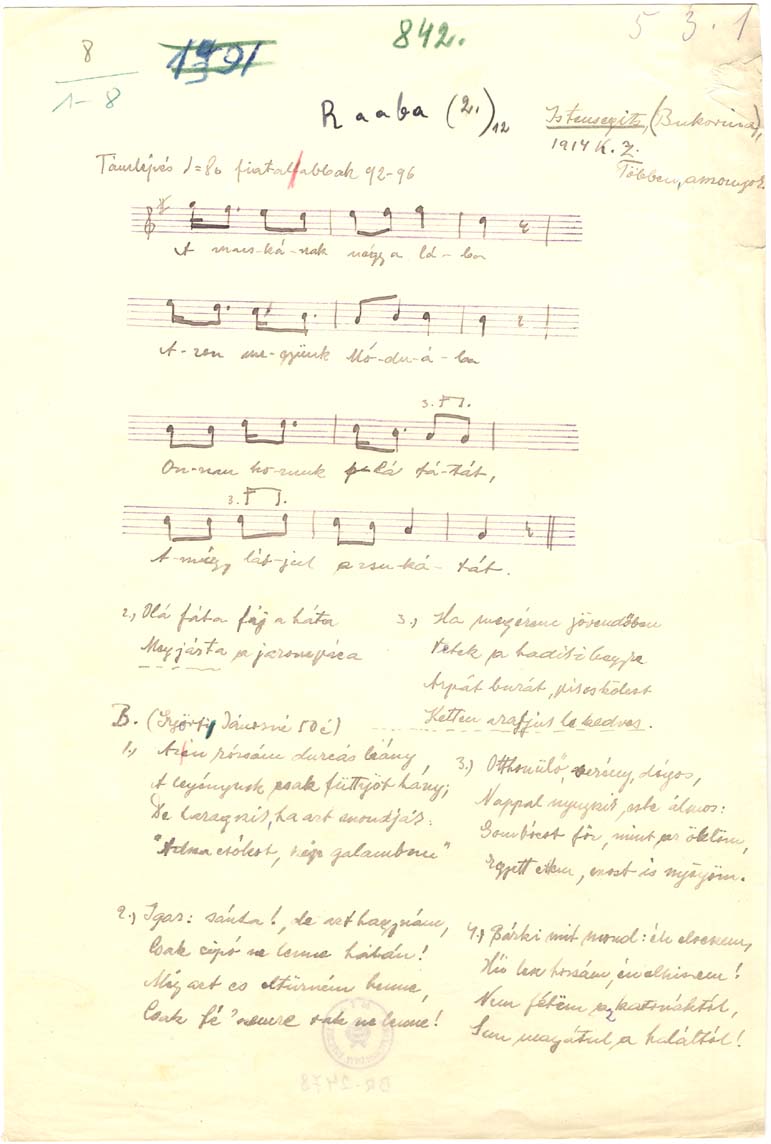 8
1-8
1391
842.
5 3.1
Raaba (2.)12
Istensegits, (Bukovina),
1914 K. Z.
Többen, asszonyok.
Tánclépés ♩=80 fiatalabbak 92-96
A macs-ká-nak négy a lá-ba
A-zon me-gyünk Mó-du-á-ba
3.
On-nan ho-zunk o-lá fá-tát,
3.
A-még lát-juk a
2., Olá fáta fáj a háta
Megjárta a
3., Ha megérem jövendőben
Vetek a haditsi hegyre
Árpát, buzát,
Ketten le kedves.
B. (Györfi Jánosné 50 é)
1., Azén rózsám durcás leány,
A legénynek csak füttyöt hány;
De haragszik, ha azt mondják:
galambom"
2., Igaz: sánta!, de azt hagynám,
Csak cipó ne lenne hátán!
Még azt es eltürném benne,
Csak fé' szemre vak ne lenne!
3.) Otthonülő, serény, dógos,
Nappal nyugszik, este álmos:
Gombócot főz, mint az öklöm,
Egyet ettem, most is nyögöm.
4.) Bárki mit mond: én elveszem,
Hű lesz hozsám, én elhiszem!
Nem félëm a katonáktól,
Sem magátul a haláltól!
DR-2478